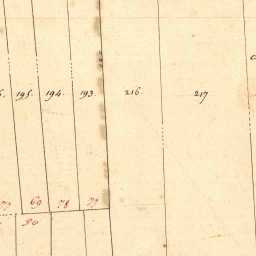 195. 194. 193. 216. 217
69 78 79
80